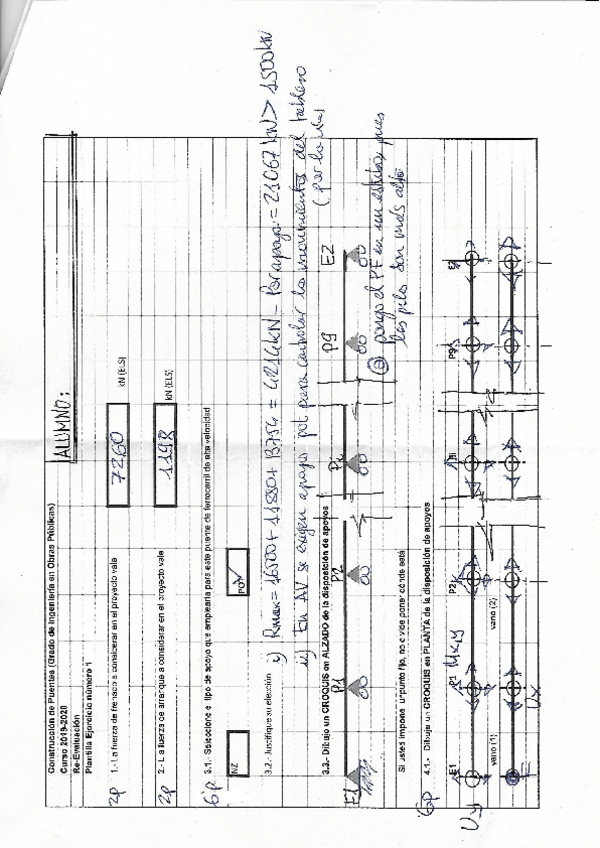 Construcción de Puentes (Grado de Ingeniería en Obras Públicas)
Curso 2019-2020
Re-Evaluación
Plantilla Ejercicio número 1
ALUMNO:
2p 1.- La fuerza de frenado a considerar en el proyecto vale
7260 kN (ELS)
2p 2.- La fuerza de arranque a considerar en el proyecto vale
1198 kN (ELS)
6p 3.1.- Seleccione el tipo de apoyo que emplearía para este puente de ferrocarril de alta velocidad
NZ
POT
3.2.- Justifique su elección
i) Rmax = 16500 + 11880 + 13754 = 42134 kN - Por apoyo = 21067 kN > 1500 kN
ii) En AV se exigen apoyos pot para controlar los movimientos del tablero
(por la vía)
3.3.- Dibuje un CROQUIS en ALZADO de la disposición de apoyos
E1 P1 P2 Pi P9 E2
Si usted impone un punto fijo, no olvide poner dónde está
pongo el PF en un estribo pues
las pilas son más altas
6p 4.1.- Dibuje un CROQUIS en PLANTA de la disposición de apoyos
E1 P1 Mx,y P2 Pi P9 E2
Uy
vano (1) vano (2)
Ux